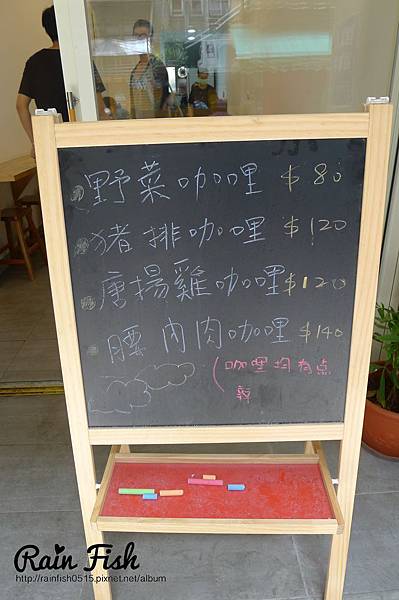 野菜咖哩 $80
猪排咖哩 $120
唐揚雞咖哩 $120
腰內肉咖哩 $140
(咖哩均有点
辣
Rain Fish
http://rainfish0515.pixnet.net/album